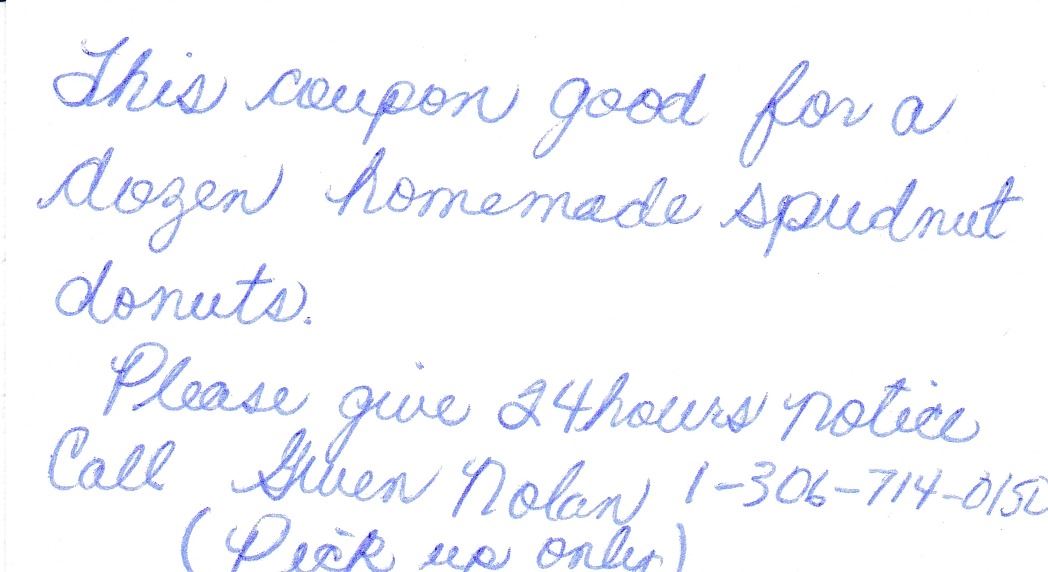 This coupon good for a
dozen homemade spudnut
donuts.
Please give 24 hours notice
Call Gwen Nolan 1-306-714-0150
(Pick up only)